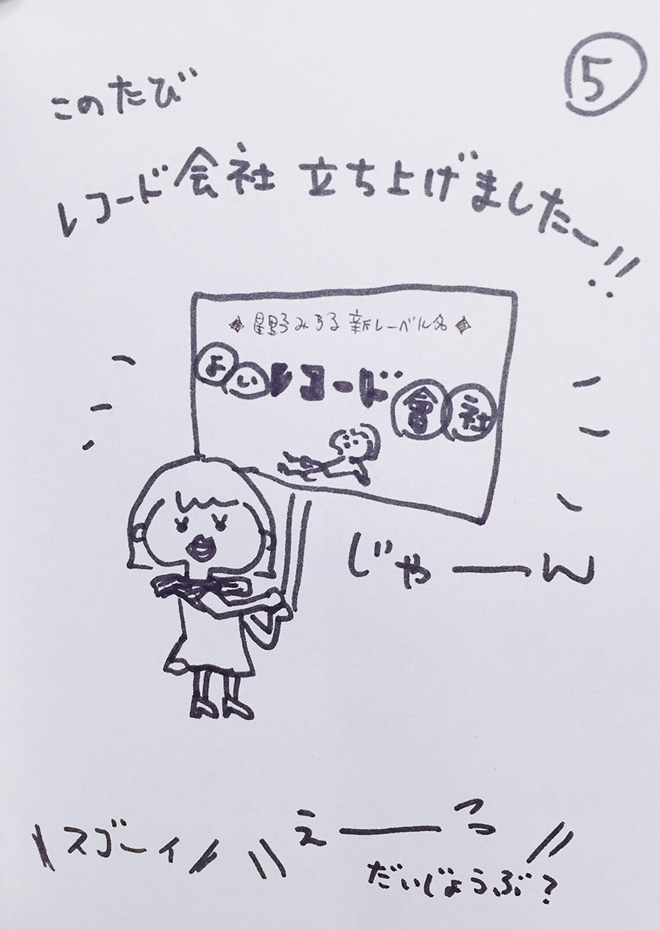 ⑤
このたび
レコード会社 立ち上げましたー!!
◆星野みちる 新レーベル名◆
よいレコード會社
じゃーん
スゴーイ
えーっ
だいじょうぶ?